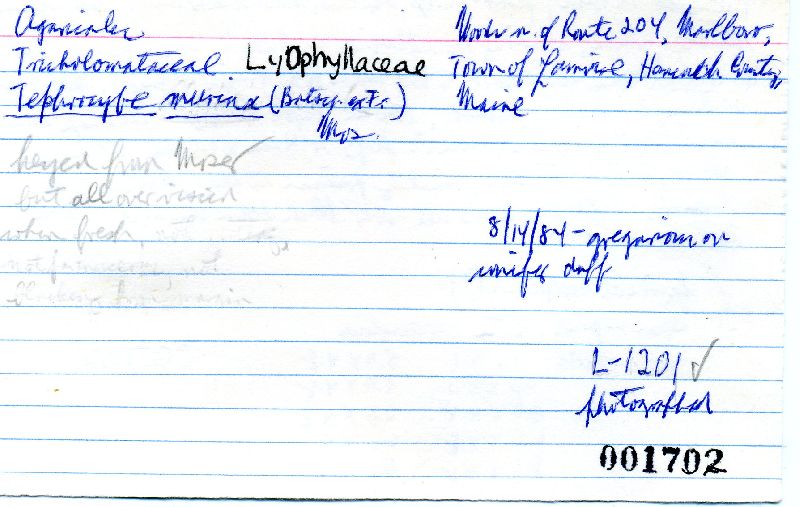 Agaricales
Tricholomataceae Lyophyllaceae
Tephrocybe murina (Batsch. ex Fr.)
Mos.
Woods n. of Route 204, Marlboro,
Town of Lamoine, Hancock County,
Maine
keyed from Moser
but all over
when fresh, not
not
8/14/84 - gregarious on
conifer duff
L-1201 ✓
photographed
001702